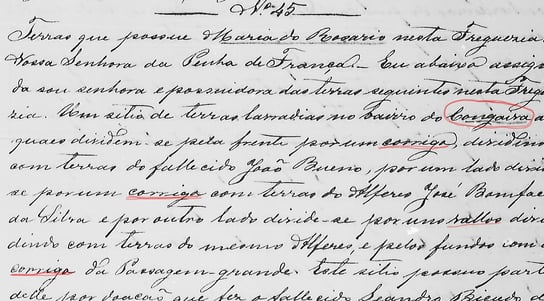 Nº 45
Terras que possue Maria do Rosario nesta Freguezia
Nossa Senhora da Penha de França. Eu abaixo assigna
da sou senhora e possuidora das terras seguintes nesta Freg
zia. Um sitio de terras lavradias no bairro do
quaes dividem-se pela frente por um corrigo, dividin
com terras do fallecido João Bueno, por um lado divi
se por um corrigo com terras do Alferes José Bonifac
da Silva e por outro lado divide-se por uns vallos divi
dindo com terras do mesmo Alferes, e pelos fundos com
corrigo da Passagem-grande. Este sitio possuo part
delle por doação que fez o fallecido Leandro